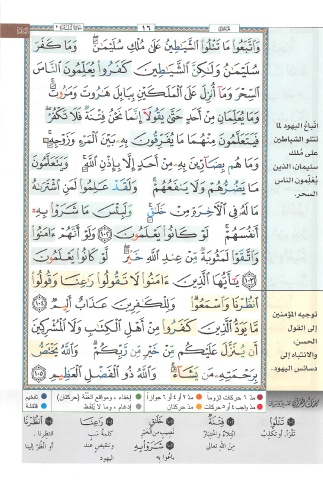 ١٦
وَاتَّبَعُوا مَا تَتْلُوا الشَّيَاطِينُ عَلَىٰ مُلْكِ سُلَيْمَانَ ۖ وَمَا كَفَرَ
سُلَيْمَانُ وَلَٰكِنَّ الشَّيَاطِينَ كَفَرُوا يُعَلِّمُونَ النَّاسَ
السِّحْرَ وَمَا أُنزِلَ عَلَى الْمَلَكَيْنِ بِبَابِلَ هَارُوتَ وَمَارُوتَ ۚ
وَمَا يُعَلِّمَانِ مِنْ أَحَدٍ حَتَّىٰ يَقُولَا إِنَّمَا نَحْنُ فِتْنَةٌ فَلَا تَكْفُرْ ۖ
فَيَتَعَلَّمُونَ مِنْهُمَا مَا يُفَرِّقُونَ بِهِ بَيْنَ الْمَرْءِ وَزَوْجِهِ ۚ
وَمَا هُم بِضَارِّينَ بِهِ مِنْ أَحَدٍ إِلَّا بِإِذْنِ اللَّهِ ۚ وَيَتَعَلَّمُونَ
مَا يَضُرُّهُمْ وَلَا يَنفَعُهُمْ ۚ وَلَقَدْ عَلِمُوا لَمَنِ اشْتَرَاهُ
مَا لَهُ فِي الْآخِرَةِ مِنْ خَلَاقٍ ۚ وَلَبِئْسَ مَا شَرَوْا بِهِ
أَنفُسَهُمْ ۚ لَوْ كَانُوا يَعْلَمُونَ ١٠٢ وَلَوْ أَنَّهُمْ آمَنُوا
وَاتَّقَوْا لَمَثُوبَةٌ مِّنْ عِندِ اللَّهِ خَيْرٌ ۖ لَّوْ كَانُوا يَعْلَمُونَ
١٠٣ يَا أَيُّهَا الَّذِينَ آمَنُوا لَا تَقُولُوا رَاعِنَا وَقُولُوا
انظُرْنَا وَاسْمَعُوا ۗ وَلِلْكَافِرِينَ عَذَابٌ أَلِيمٌ ١٠٤
مَّا يَوَدُّ الَّذِينَ كَفَرُوا مِنْ أَهْلِ الْكِتَابِ وَلَا الْمُشْرِكِينَ
أَن يُنَزَّلَ عَلَيْكُم مِّنْ خَيْرٍ مِّن رَّبِّكُمْ ۗ وَاللَّهُ يَخْتَصُّ
بِرَحْمَتِهِ مَن يَشَاءُ ۚ وَاللَّهُ ذُو الْفَضْلِ الْعَظِيمِ ١٠٥
اتباع اليهود لما
تتلو الشياطين
على مُلك
سليمان، الذين
يُعَلِّمون الناس
السحر.
توجيه المؤمنين
إلى القول
الحسن،
والانتباه إلى
دسائس اليهود.
تَتْلُوا
تقرأ، أو تكذب
فِتْنَةٌ
ابتلاء واختبار
من الله تعالى
خَلَاقٍ
نصيب من الخير
شَرَوْا بِهِ
باعوا به
رَاعِنَا
كلمة سب
وتنقيص عند
اليهود
انظُرْنَا
انتظرنا،
أو انظر إلينا